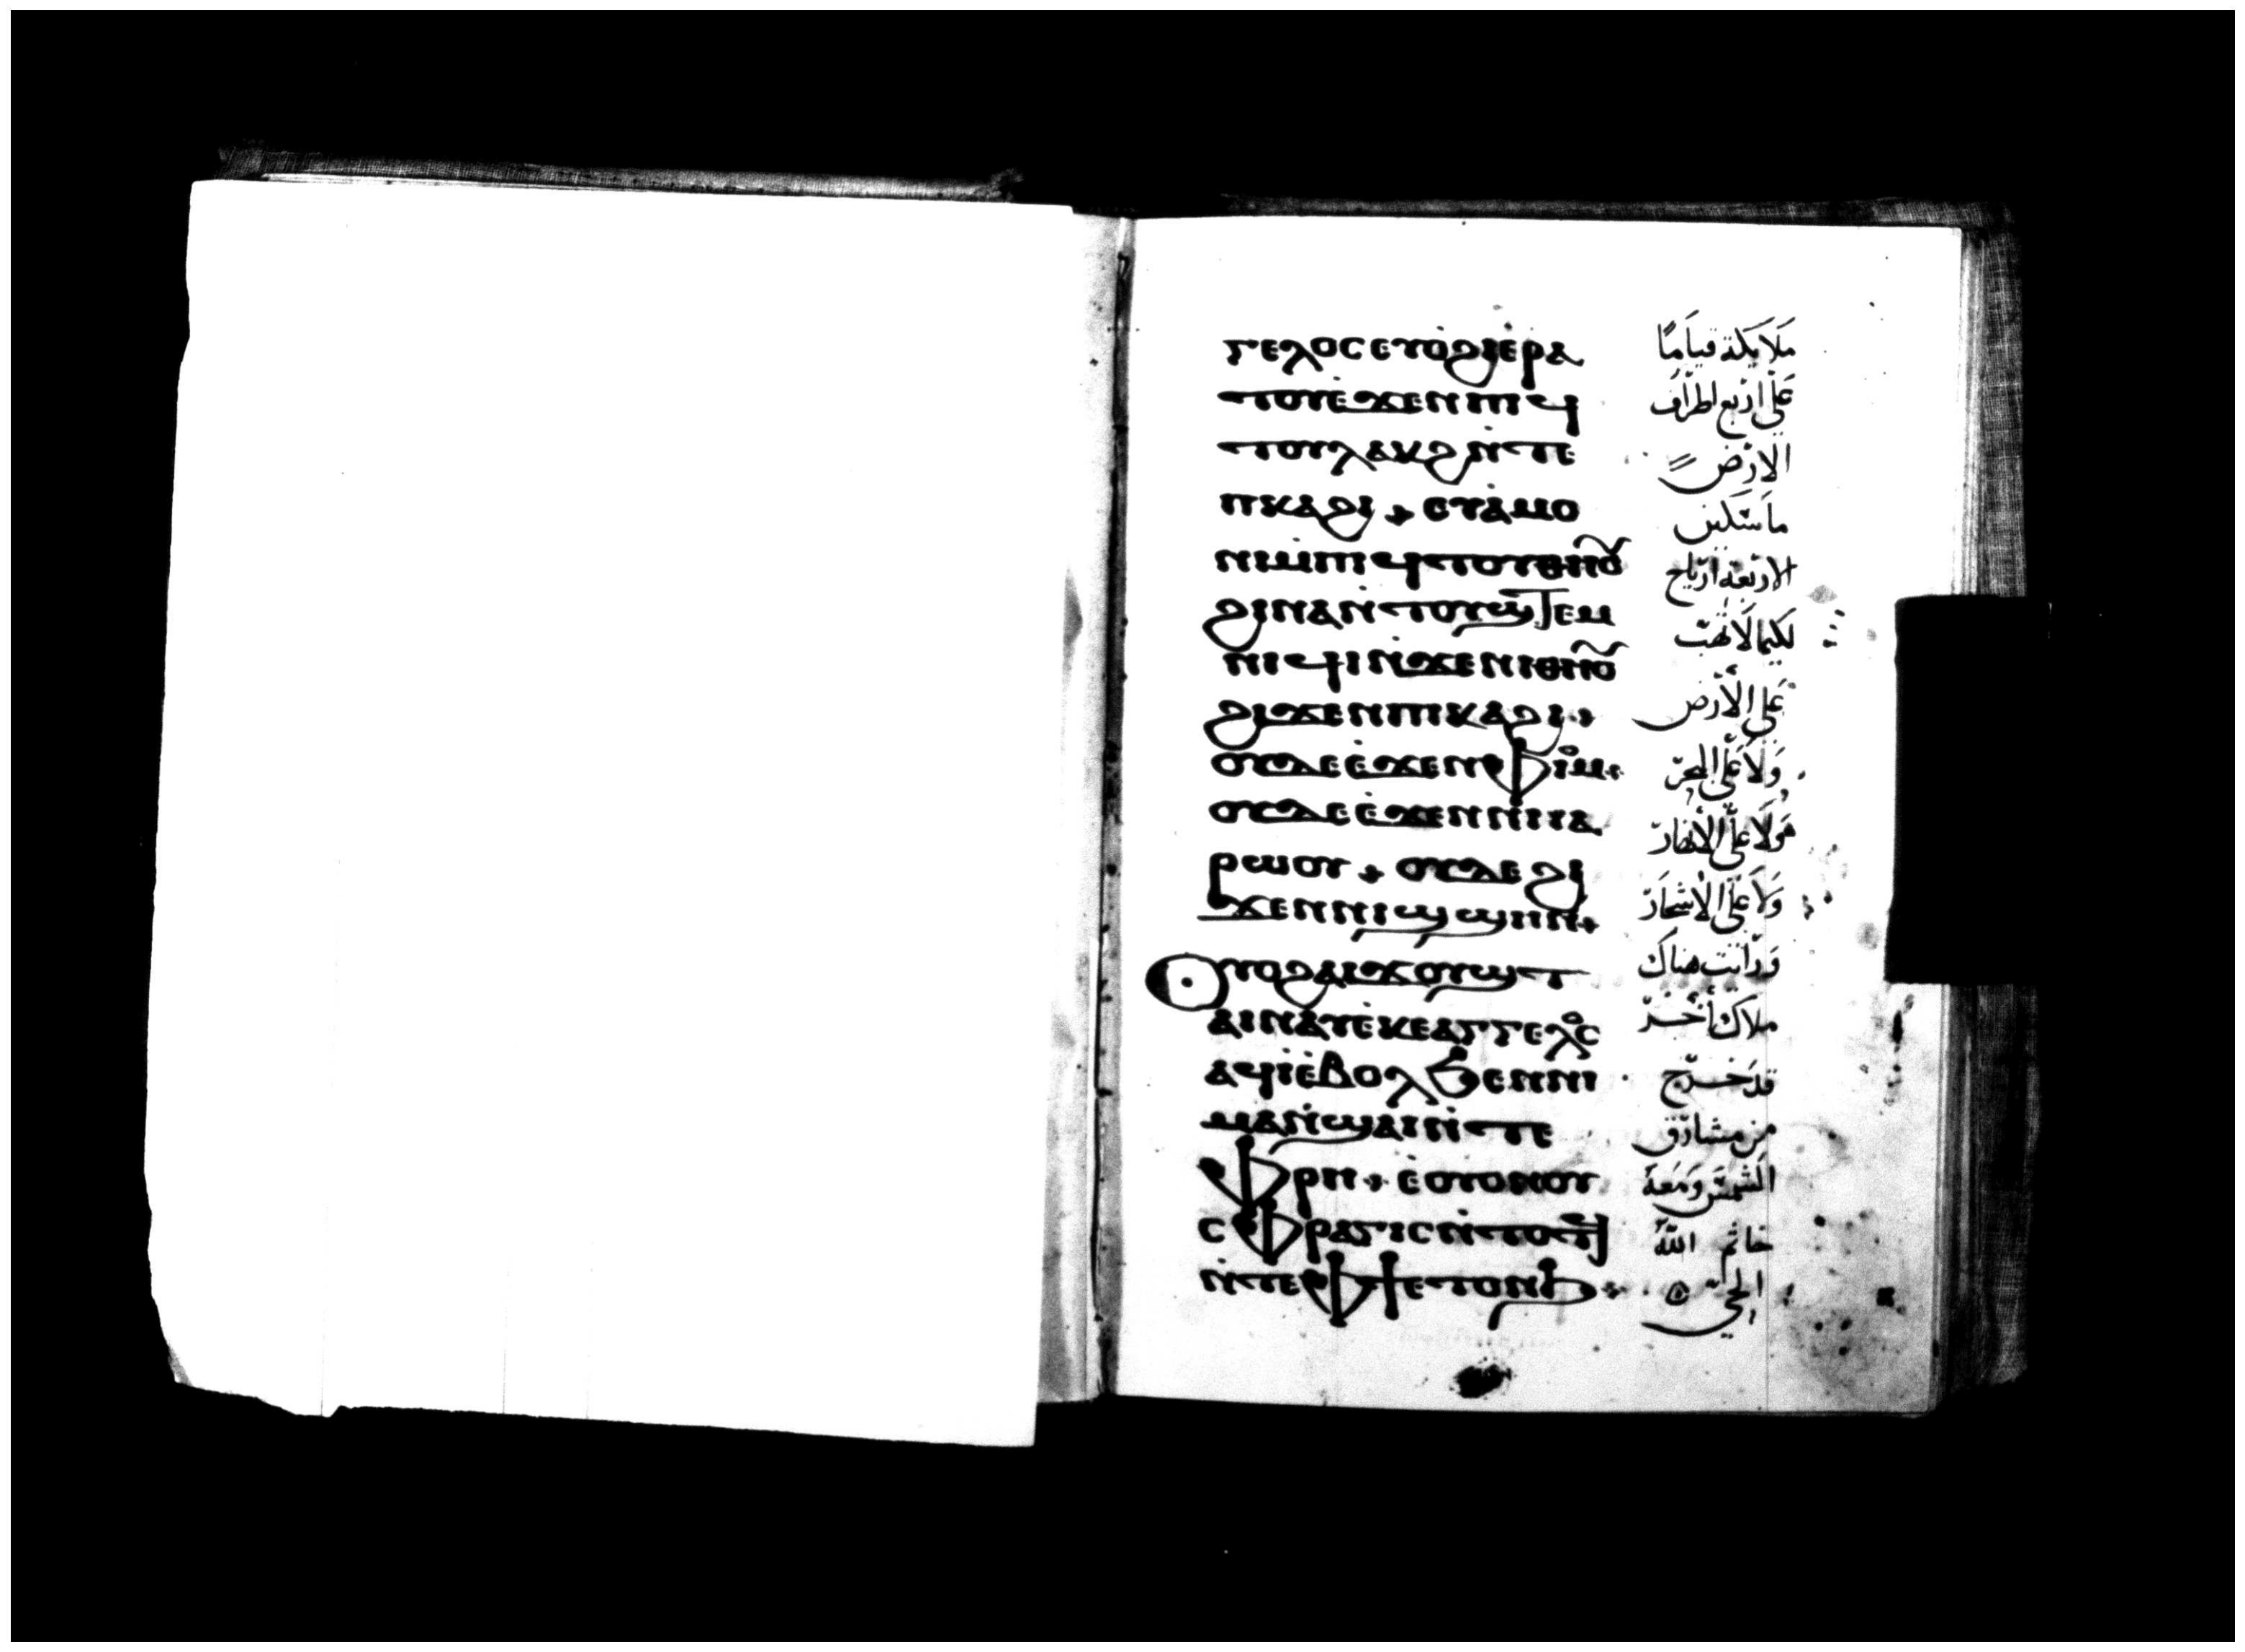 ⲅⲉⲗⲟⲥ ⲉⲩⲟ̇ϩⲓⲉ̇ⲣⲁ
ⲧⲟⲩⲉ̇ϫⲉⲛⲡⲓϥ
ⲧⲟⲩⲗⲁⲕϩⲛ̇ⲧⲉ
ⲡⲕⲁϩⲓ + ⲉⲩⲁ̇ⲙⲟ
ⲛⲓⲙ̇ⲡⲓϥⲧⲟⲩⲑⲏⲟ̅ⲩ
ϩⲓⲛⲁⲛ̇ⲧⲟⲩϣⲧⲉⲙ
ⲛⲓϥⲓⲛ̇ϫⲉⲛⲓⲑⲏⲟ̅ⲩ
ϩⲓϫⲉⲛⲡⲓⲕⲁϩⲓ +
ⲟⲩⲇⲉ ⲉ̇ϫⲉⲛⲫⲓⲟⲙ +
ⲟⲩⲇⲉ ⲉ̇ϫⲉⲛⲛⲓⲓⲁ
ⲣⲱⲟⲩ + ⲟⲩⲇⲉ ϩⲓ
ϫⲉⲛⲛⲓϣϣⲏⲛ +
Ⲟⲩⲟϩ ⲁⲓϫⲟⲩϣⲧ
ⲁⲓⲛⲁⲩⲉ̇ⲕⲉⲁⲅⲅⲉⲗⲟⲥ
ⲁϥⲓ̇ⲉ̇ⲃⲟⲗ ϧⲉⲛⲛⲓ
ⲙⲁⲛ̇ϣⲁⲓⲛ̇ⲧⲉ
ⲫⲣⲏ + ⲉ̇ⲟⲩⲟⲛⲟⲩ
ⲥⲫⲣⲁⲅⲓⲥ ⲛ̇ⲧⲟⲧϥ
ⲛ̇ⲧⲉⲫϯ ⲉⲧⲟⲛϧ
مَلَايكة قيَامًا
عَلي اَربع اطرَاف
الارض
ماسَكين
الاربعة ارياح
لكيما لَا تهب
عَلى الأرض
وَلَا عَلى البحر
وَلَا عَلى الأنهار
وَلَا عَلى الأشجَار
وَرايت هناك
ملاك أخر
قد خرج
من مشارق
الشمس وَمَعهُ
خاتم اللّه
الحي